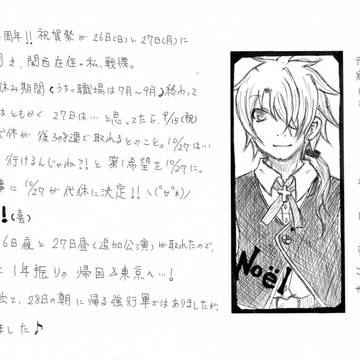 周年!! 祝賀祭が26日(日)と27日(月)に
き、関西在住の私、戦慄。
休み期間(うちの職場は7月〜9月)終わって
はともかく27日は…と思ってたら、9/15(祝)
代休が後3の3週で取れるとのこと。10/27は…
行けるんじゃね?!と第1希望を10/27に。
事に10/27が代休に決定!! \(°∀°*)/
!(喜)
6日夜と27日昼(追加公演)が取れたので、
1年振りの帰国&東京へ…!
28日の朝に帰る強行軍ではありましたが、
ました♪
Noël